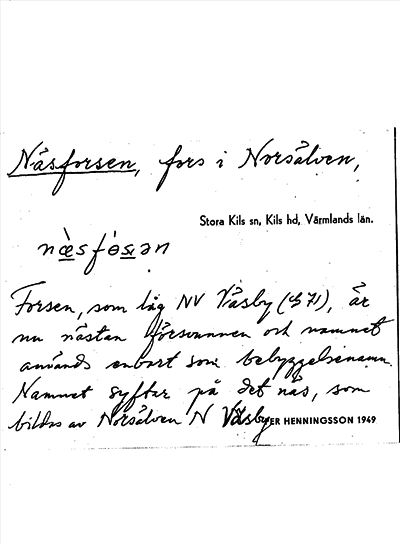 Näsforsen, fors i Norsälven,
Stora Kils sn, Kils hd, Värmlands län.
Forsen, som låg NV Väsby (1/471), är
nu nästan försvunnen och namnet
används enbart som bebyggelsenamn.
Namnet syftar på det näs, som
bildas av Norsälven N Väsby
ER HENNINGSSON 1949